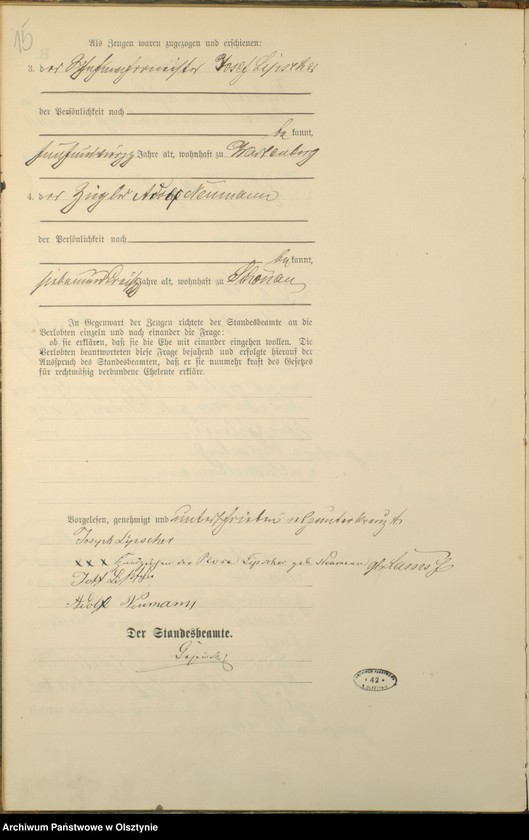 15
Als Zeugen waren zugezogen und erschienen:
3. der Schuhmachermeister Josef Lipscher
der Persönlichkeit nach
be kannt,
fünfundvierzig Jahre alt, wohnhaft zu Wartenberg
4. der Ziegler Adolf Neumann
der Persönlichkeit nach
be kannt,
siebenunddreißig Jahre alt, wohnhaft zu Schönau
In Gegenwart der Zeugen richtete der Standesbeamte an die
Verlobten einzeln und nach einander die Frage:
ob sie erklären, daß sie die Ehe mit einander eingehen wollen. Die
Verlobten beantworteten diese Frage bejahend und erfolgte hierauf der
Ausspruch des Standesbeamten, daß er sie nunmehr kraft des Gesetzes
für rechtmäßig verbundene Eheleute erkläre.
Vorgelesen, genehmigt und unterschrieben resp unterkreuzt
Joseph Lipscher
x x x Handzeichen der Rosa Lipscher geb. Neumann
Josef Lipscher
Adolf Neumann
Der Standesbeamte.
42
Archiwum Państwowe w Olsztynie